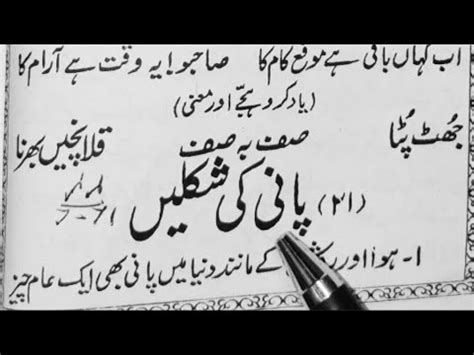 اب کہاں باقی ہے موقع کام کا صاحبو! یہ وقت ہے آرام کا
(یاد کرو ہجّے اور معنی)
جھُٹ پُٹا صف بہ صف قلانچیں بھرنا
(۲۱) پانی کی شکلیں
۱- ہوا اور کے مانند دنیا میں پانی بھی ایک عام چیز